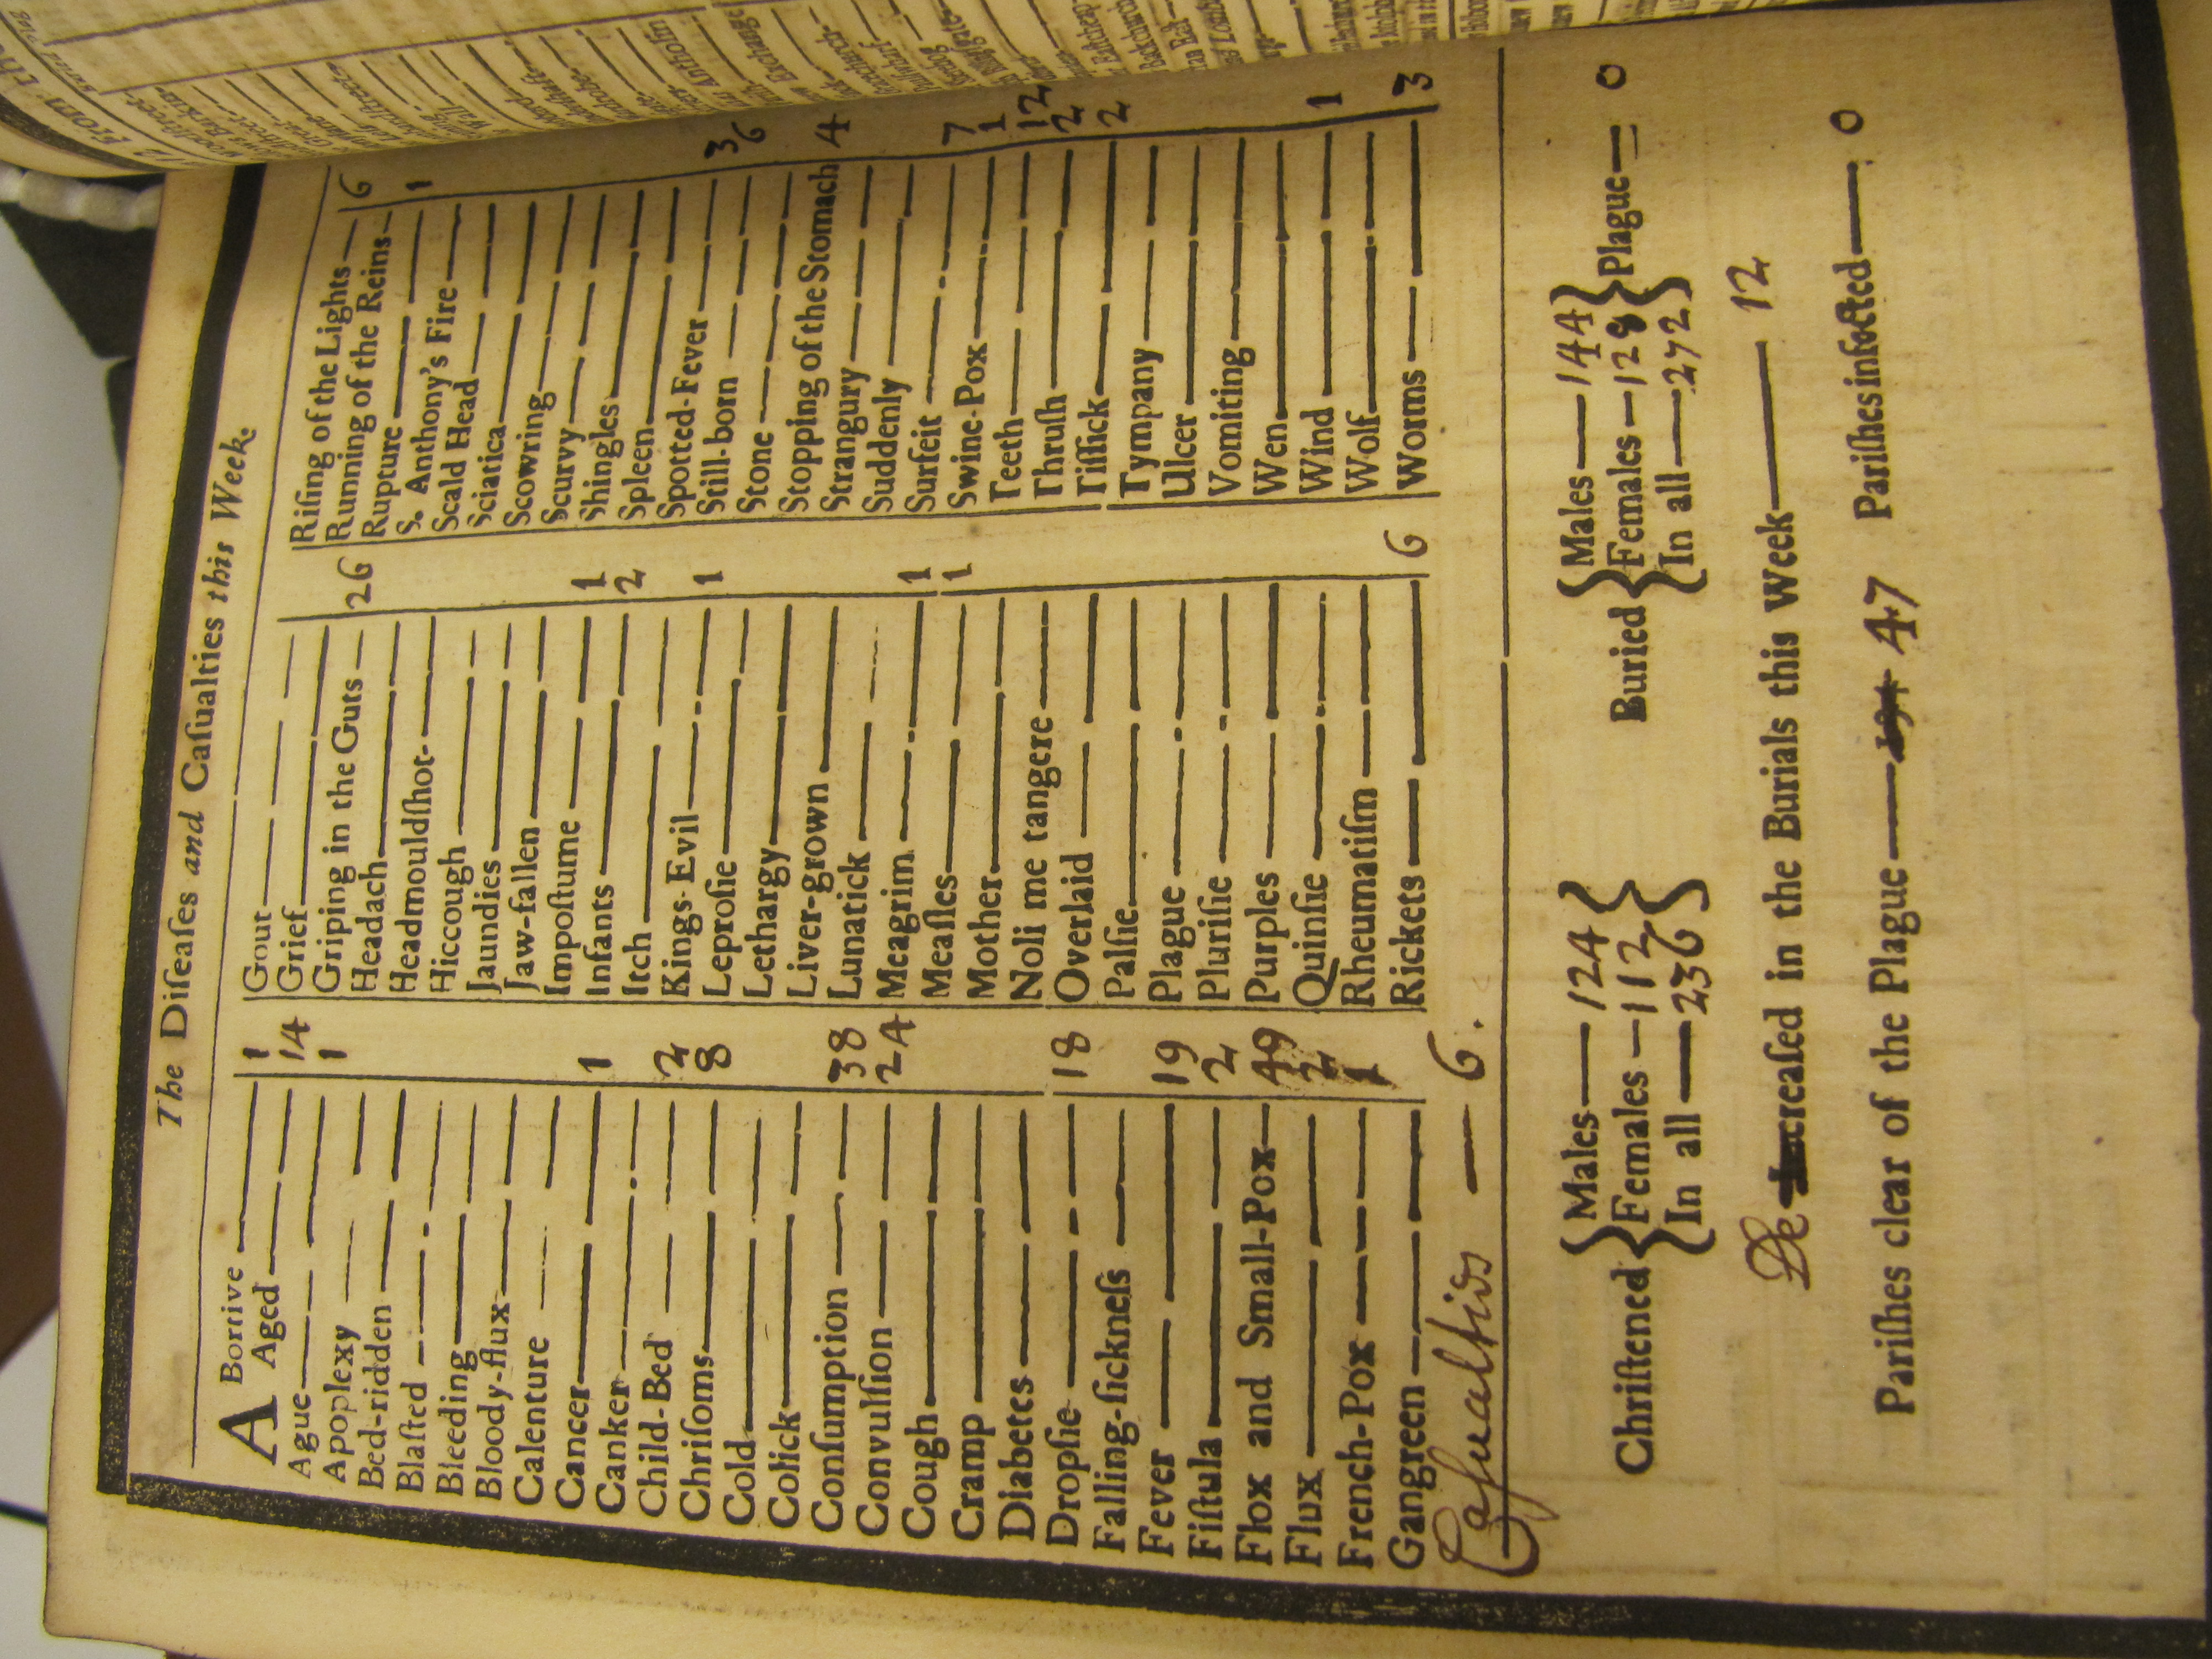 The Diſeaſes and Caſualties this Week.
ABortive 1
Aged 14
Ague 1
Apoplexy
Bed-ridden
Blaſted
Bleeding
Bloody-flux
Calenture
Cancer 1
Canker
Child-Bed 2
Chriſoms 8
Cold
Colick
Conſumption 38
Convulſion 24
Cough
Cramp
Diabetes
Dropſie 18
Falling-ſickneſs
Fever 19
Fiſtula 2
Flox and Small-Pox 49
Flux 2
French-Pox 1
Gangreen
Caſualtios — 6.
Gout
Grief
Griping in the Guts 26
Headach
Headmouldſhot
Hiccough
Jaundies
Jaw-fallen
Impoſtume 1
Infants 2
Itch
Kings-Evil 1
Leproſie
Lethargy
Liver-grown
Lunatick
Meagrim 1
Meaſles 1
Mother
Noli me tangere
Overlaid
Palſie
Plague
Pluriſie
Purples
Quinſie
Rheumatiſm
Rickets 6
Riſing of the Lights 6
Running of the Reins
Rupture 1
S. Anthony's Fire
Scald Head
Sciatica
Scowring
Scurvy
Shingles
Spleen
Spotted-Fever 3
Still-born 6
Stone
Stopping of the Stomach 4
Strangury
Suddenly
Surfeit 7
Swine-Pox 1
Teeth 12
Thruſh 2
Tiſſick 2
Tympany
Ulcer
Vomiting
Wen
Wind 1
Wolf
Worms 3
Chriſtened { Males — 124 Females — 112 In all — 236 }
Buried { Males — 144 Females — 128 In all — 272 } Plague — 0
Decreaſed in the Burials this Week — 12
Pariſhes clear of the Plague — 47 Pariſhes infected — 0